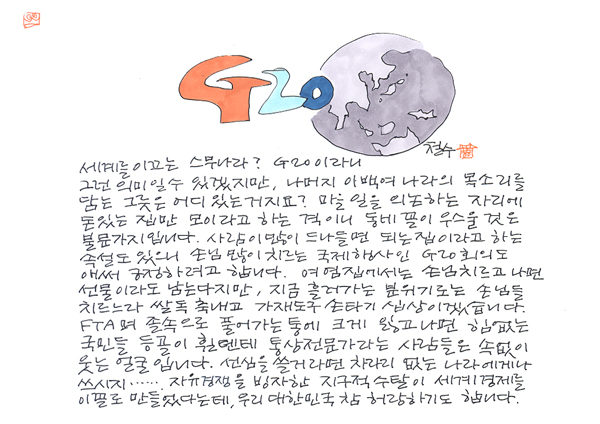 G20
철수
세계를 이끄는 스무나라? G20이라니
그런 의미일 수 있겠지만, 나머지 이백여 나라의 목소리를
담는 그릇은 어디 있는거지요? 마을 일을 의논하는 자리에
돈있는 집만 모이라고 하는 격이니 동네 꼴이 우스울 것은
불문가지입니다. 사람이 많이 드나들면 되는 집이라고 하는
속설도 있으니 손님 많이 치르는 국제행사인 G20 회의도
애써 긍정하려고 합니다. 여염집에서는 손님치르고 나면
선물이라도 남는다지만, 지금 흘러가는 분위기로는 손님들
치르느라 쌀독 축내고 가재도구 손타기 십상이겠습니다.
FTA며 졸속으로 풀어가는 통에 크게 잃고나면 힘없는
국민들 등골이 휠텐데 통상전문가라는 사람들은 속없이
웃는 얼굴입니다. 선심을 쓸거라면 차라리 없는 나라에게나
쓰시지……. 자유경쟁을 빙자한 지구적 수탈이 세계경제를
이 꼴로 만들었다는데, 우리 대한민국 참 허랑하기도 합니다.